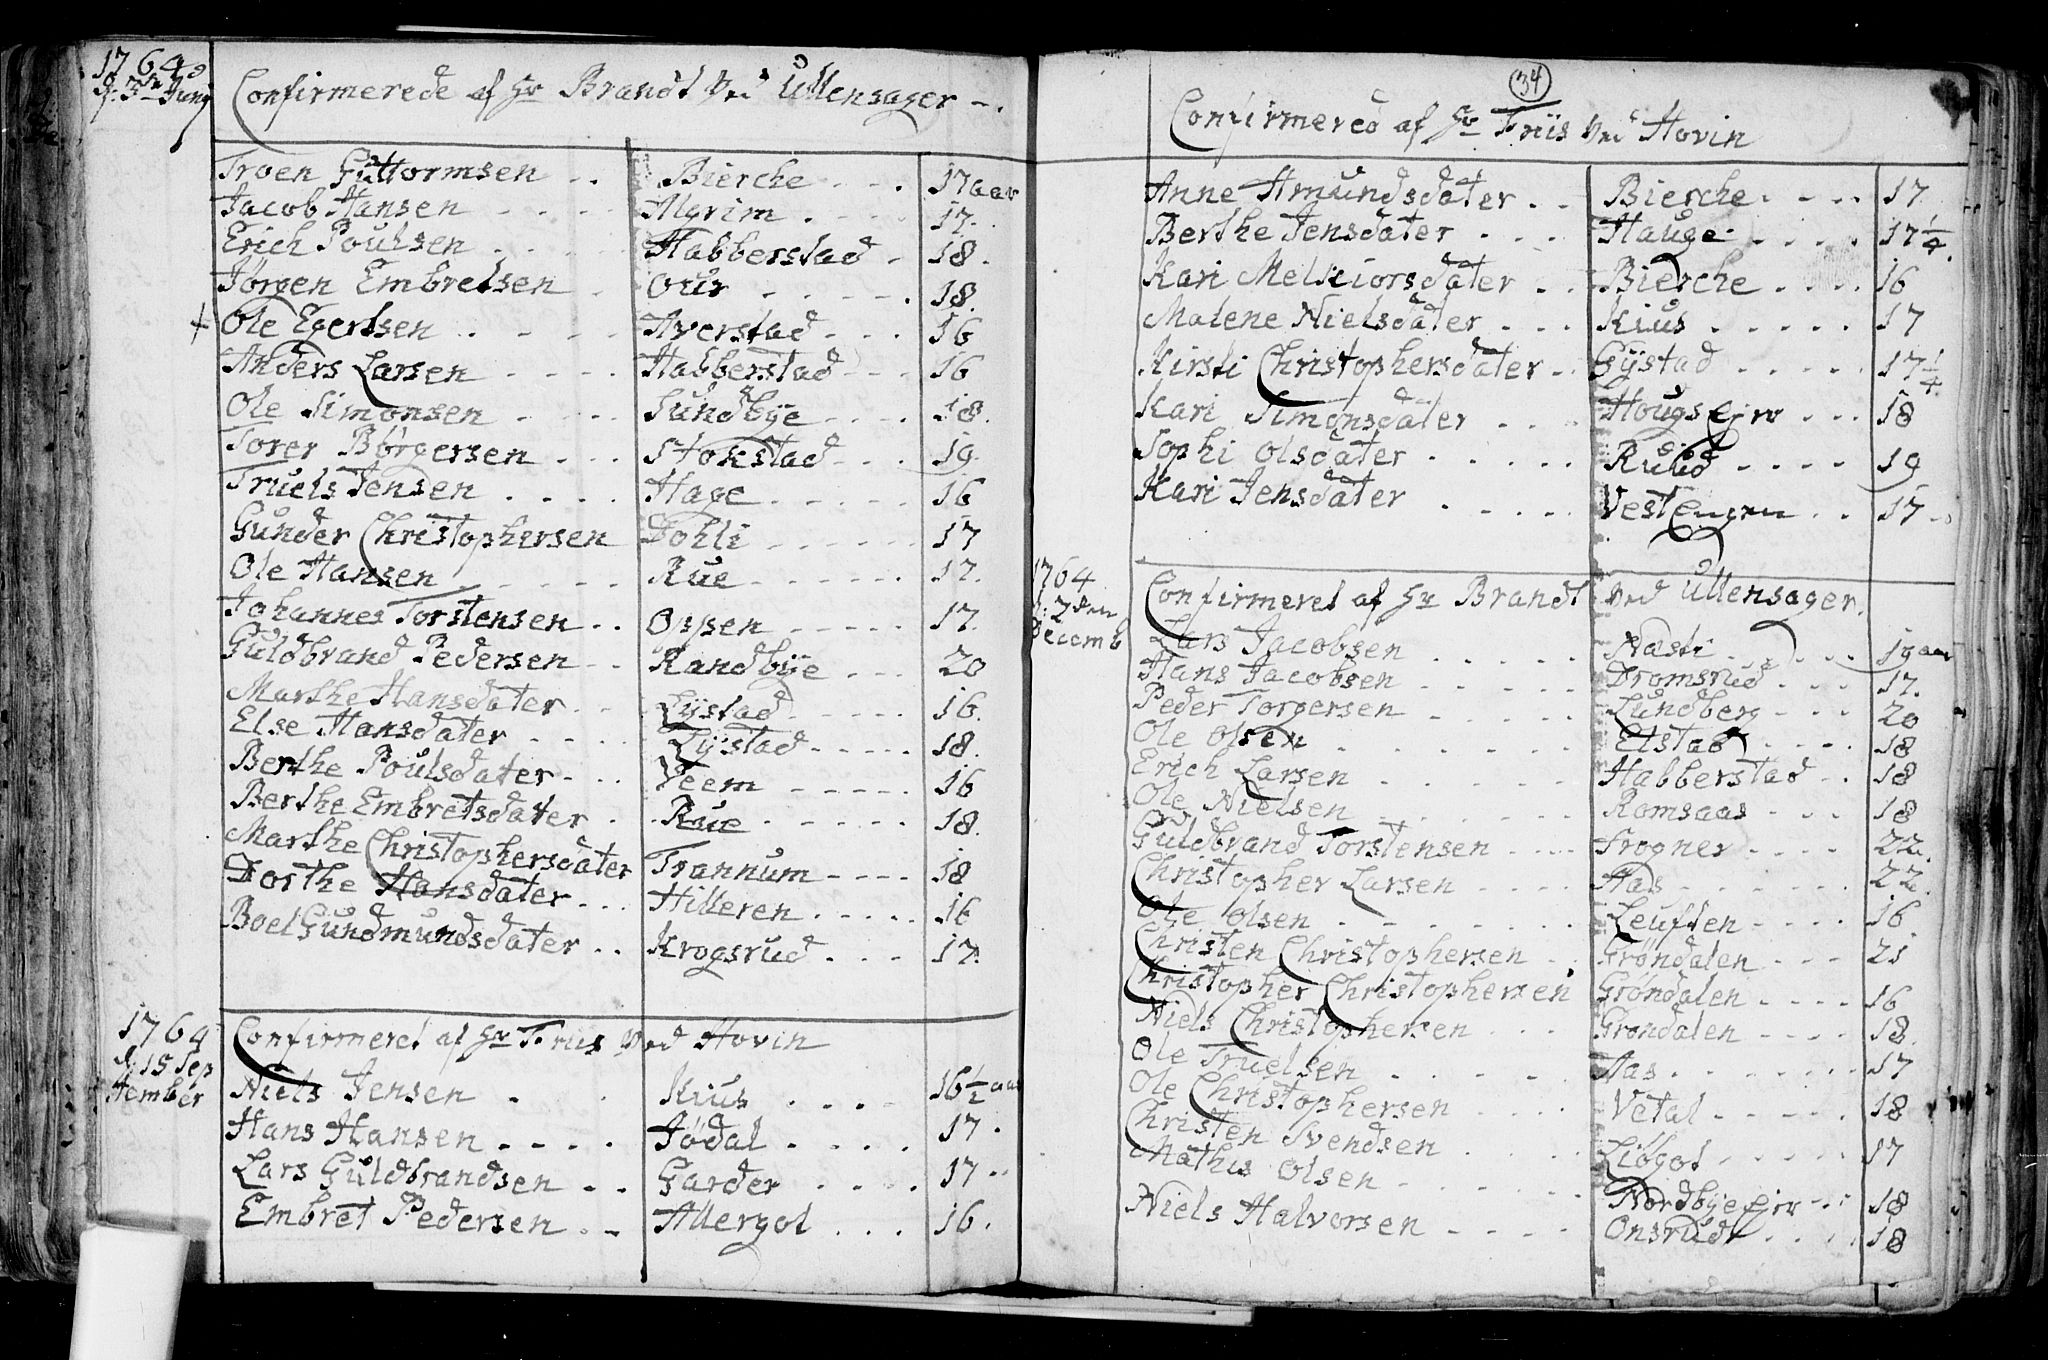 1764
d. 3die Juny
Confirmerede af Hr Brandt ved Ullensager
Troen Guttormsen Bierche 17 aar
Jacob Hansen Algrim 17.
Erich Poulsen Habberstad 18.
Jørgen Embretsen Our 18.
+ Ole Egertsen Averstad 16
Anders Larsen Habberstad 16
Ole Simonsen Sundbÿe 18.
Torer Børgersen Stokstad 19
Truels Jensen Hage 16
Gunder Christophersen Dohli 17
Ole Hansen Rue 17.
Johannes Torstensen Oppen 17.
Guldbrand Pedersen Randbÿe 20
Marthe Hansdater Lÿstad 16.
Else Hansdater Lÿstad 18.
Berthe Poulsdater Veem 16
Berthe Embretsdater Rue 18.
Marthe Christophersdater Trannum 18
Dorthe Hansdater Hilleren 16
Boel Gundmundsdater Krogsrud 17.
1764
d. 15 Sep
tember
Confirmeret af Hr Friis ved Hovin
Niels Jensen Kius 16 1/2 aar
Hans Hansen Jødal 17.
Lars Guldbrandsen Garder 17
Embret Pedersen Allergot 16.
34
Confirmered af Hr Friis ved Hovin
Anne Amundsdater Bierche 17
Berthe Jensdater Hauge 17 1/4.
Kari Melkiorsdater Bierche 16
Malene Nielsdater Kius 17
Kirsti Christophersdater Gÿstad 17 1/4
Kari Simonsdater Hougs Ejer 18
Sophi Olsdater Ruud 19
Kari Jensdater Vest Engen 17
1764
d. 2den
Decemb
Confirmeret af Hr Brandt ved Ullensager.
Lars Jacobsen Næsti 19 aar
Hans Jacobsen Dromsrud 17.
Peder Torgersen Lundberg 20
Ole Olsen Elstad 18
Erich Larsen Habberstad 18
Ole Nielsen Romsaas 18
Guldbrand Torstensen Frogner 22.
Christopher Larsen Aas 22.
Ole Olsen Leuften 16
Christen Christophersen Grøndalen 21
Christopher Christophersen Grøndalen 16
Niels Christophersen Grøndalen 18.
Ole Truelsen Aas 17
Ole Christophersen Vetal 18
Christen Svendsen Libgot 17
Mathis Olsen Nordbye Ejer 18
Niels Halvorsen Onsrud 18